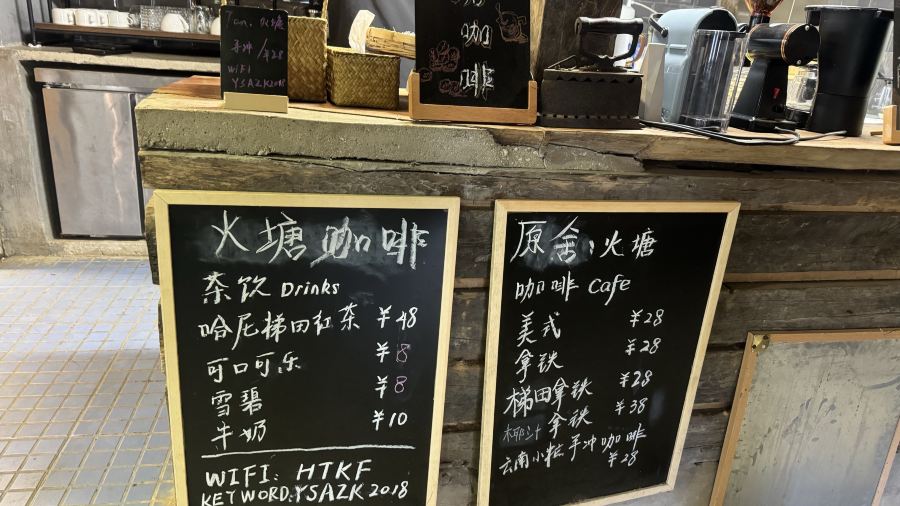 火塘
手冲/¥28
WIFI
YSAZK2018
咖
啡
火塘咖啡
茶饮 Drinks
哈尼梯田红茶 ¥48
可口可乐 ¥8
雪碧 ¥8
牛奶 ¥10
WIFI: HTKF
KEYWORD:YSAZK2018
原舍:火塘
咖啡 Cafe
美式 ¥28
拿铁 ¥28
梯田拿铁 ¥28
椰汁拿铁 ¥38
云南小粒手冲咖啡
¥28